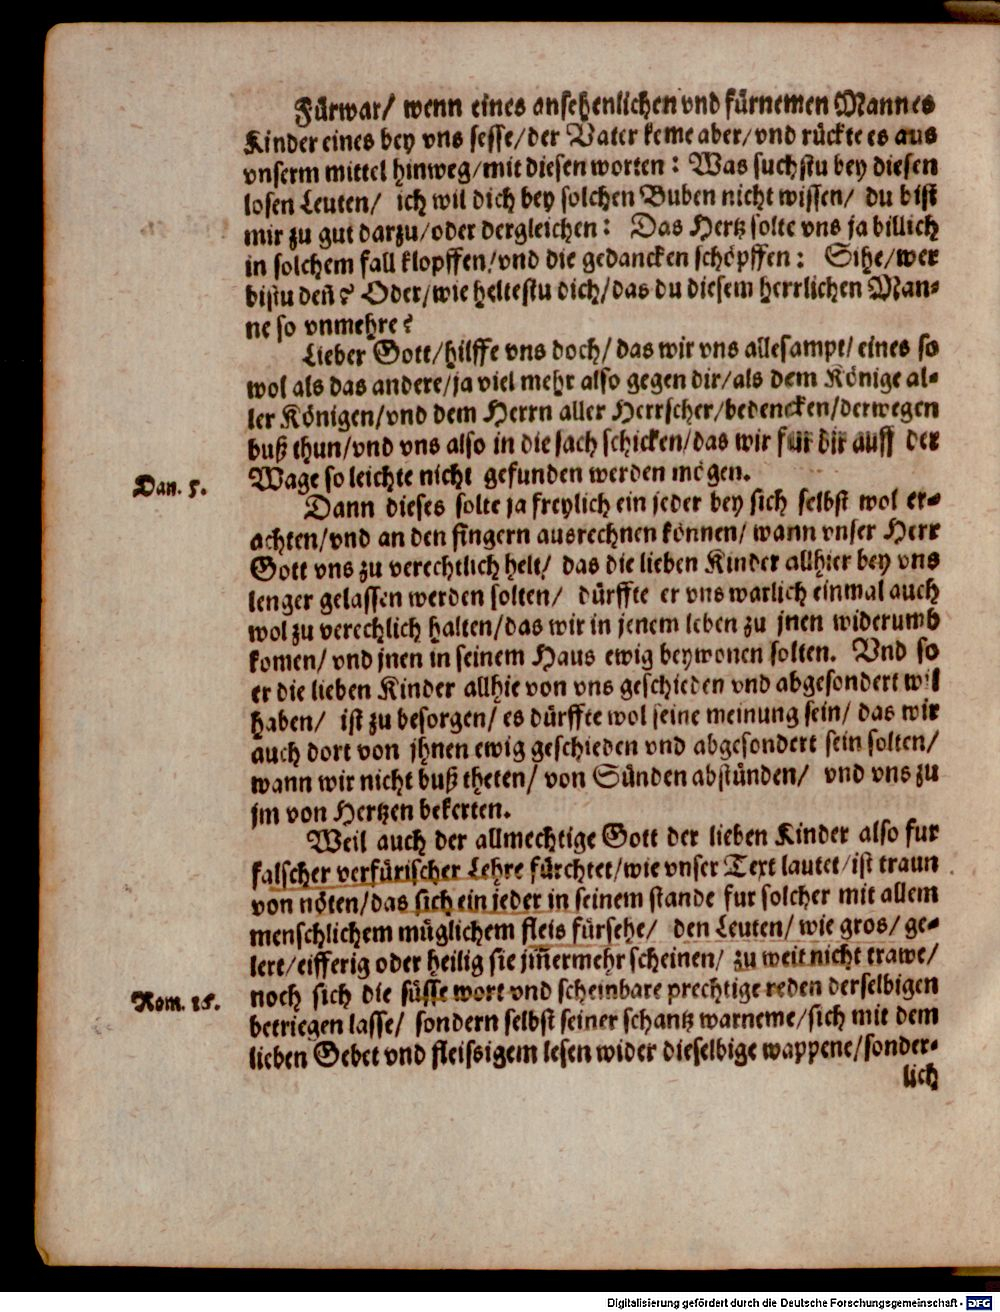 Fürwar/ wenn eines ansehenlichen vnd fürnemen Mannes
Kinder eines bey vns sesse/der Vater keme aber/vnd rückte es aus
vnserm mittel hinweg/mit diesen worten: Was suchstu bey diesen
losen Leuten/ ich wil dich bey solchen Buben nicht wissen/ du bist
mir zu gut darzu/oder dergleichen: Das Hertz solte vns ja billich
in solchem fall klopffen/vnd die gedancken schöpffen: Sihe/wer
bistu deñ? Oder/wie heltestu dich/das du diesem herrlichen Man-
ne so vnmehre?
Lieber Gott/hilffe vns doch/das wir vns allesampt/eines so
wol als das andere/ja viel mehr also gegen dir/als dem Könige al-
ler Königen/vnd dem Herrn aller Herrscher/bedencken/derwegen
buß thun/vnd vns also in die sach schicken/das wir für dir auff der
Wage so leichte nicht gefunden werden mögen.
Dan. 5.
Dann dieses solte ja freylich ein jeder bey sich selbst wol er-
achten/vnd an den fingern ausrechnen können/ wann vnser Herr
Gott vns zu verechtlich helt/ das die lieben Kinder allhier bey vns
lenger gelassen werden solten/ dürffte er vns warlich einmal auch
wol zu verechlich halten/das wir in jenem leben zu jnen widerumb
komen/ vnd jnen in seinem Haus ewig beywonen solten. Vnd so
er die lieben Kinder allhie von vns geschieden vnd abgesondert wil
haben/ ist zu besorgen/ es dürffte wol seine meinung sein/ das wir
auch dort von jhnen ewig geschieden vnd abgesondert sein solten/
wann wir nicht buß theten/ von Sünden abstünden/ vnd vns zu
jm von Hertzen bekerten.
Weil auch der allmechtige Gott der lieben Kinder also fur
falscher verfürischer Lehre fürchtet/wie vnser Text lautet/ist traun
von nöten/das sich ein jeder in seinem stande fur solcher mit allem
menschlichem müglichem fleis fürsehe/ den Leuten/ wie gros/ ge-
lert/eifferig oder heilig sie jm̃ermehr scheinen/ zu weit nicht trawe/
noch sich die süsse wort vnd scheinbare prechtige reden derselbigen
Rom. 16.
betriegen lasse/ sondern selbst seiner schantz warneme/sich mit dem
lieben Gebet vnd fleissigem lesen wider dieselbige wappene/sonder-
lich
Digitalisierung gefördert durch die Deutsche Forschungsgemeinschaft - DFG